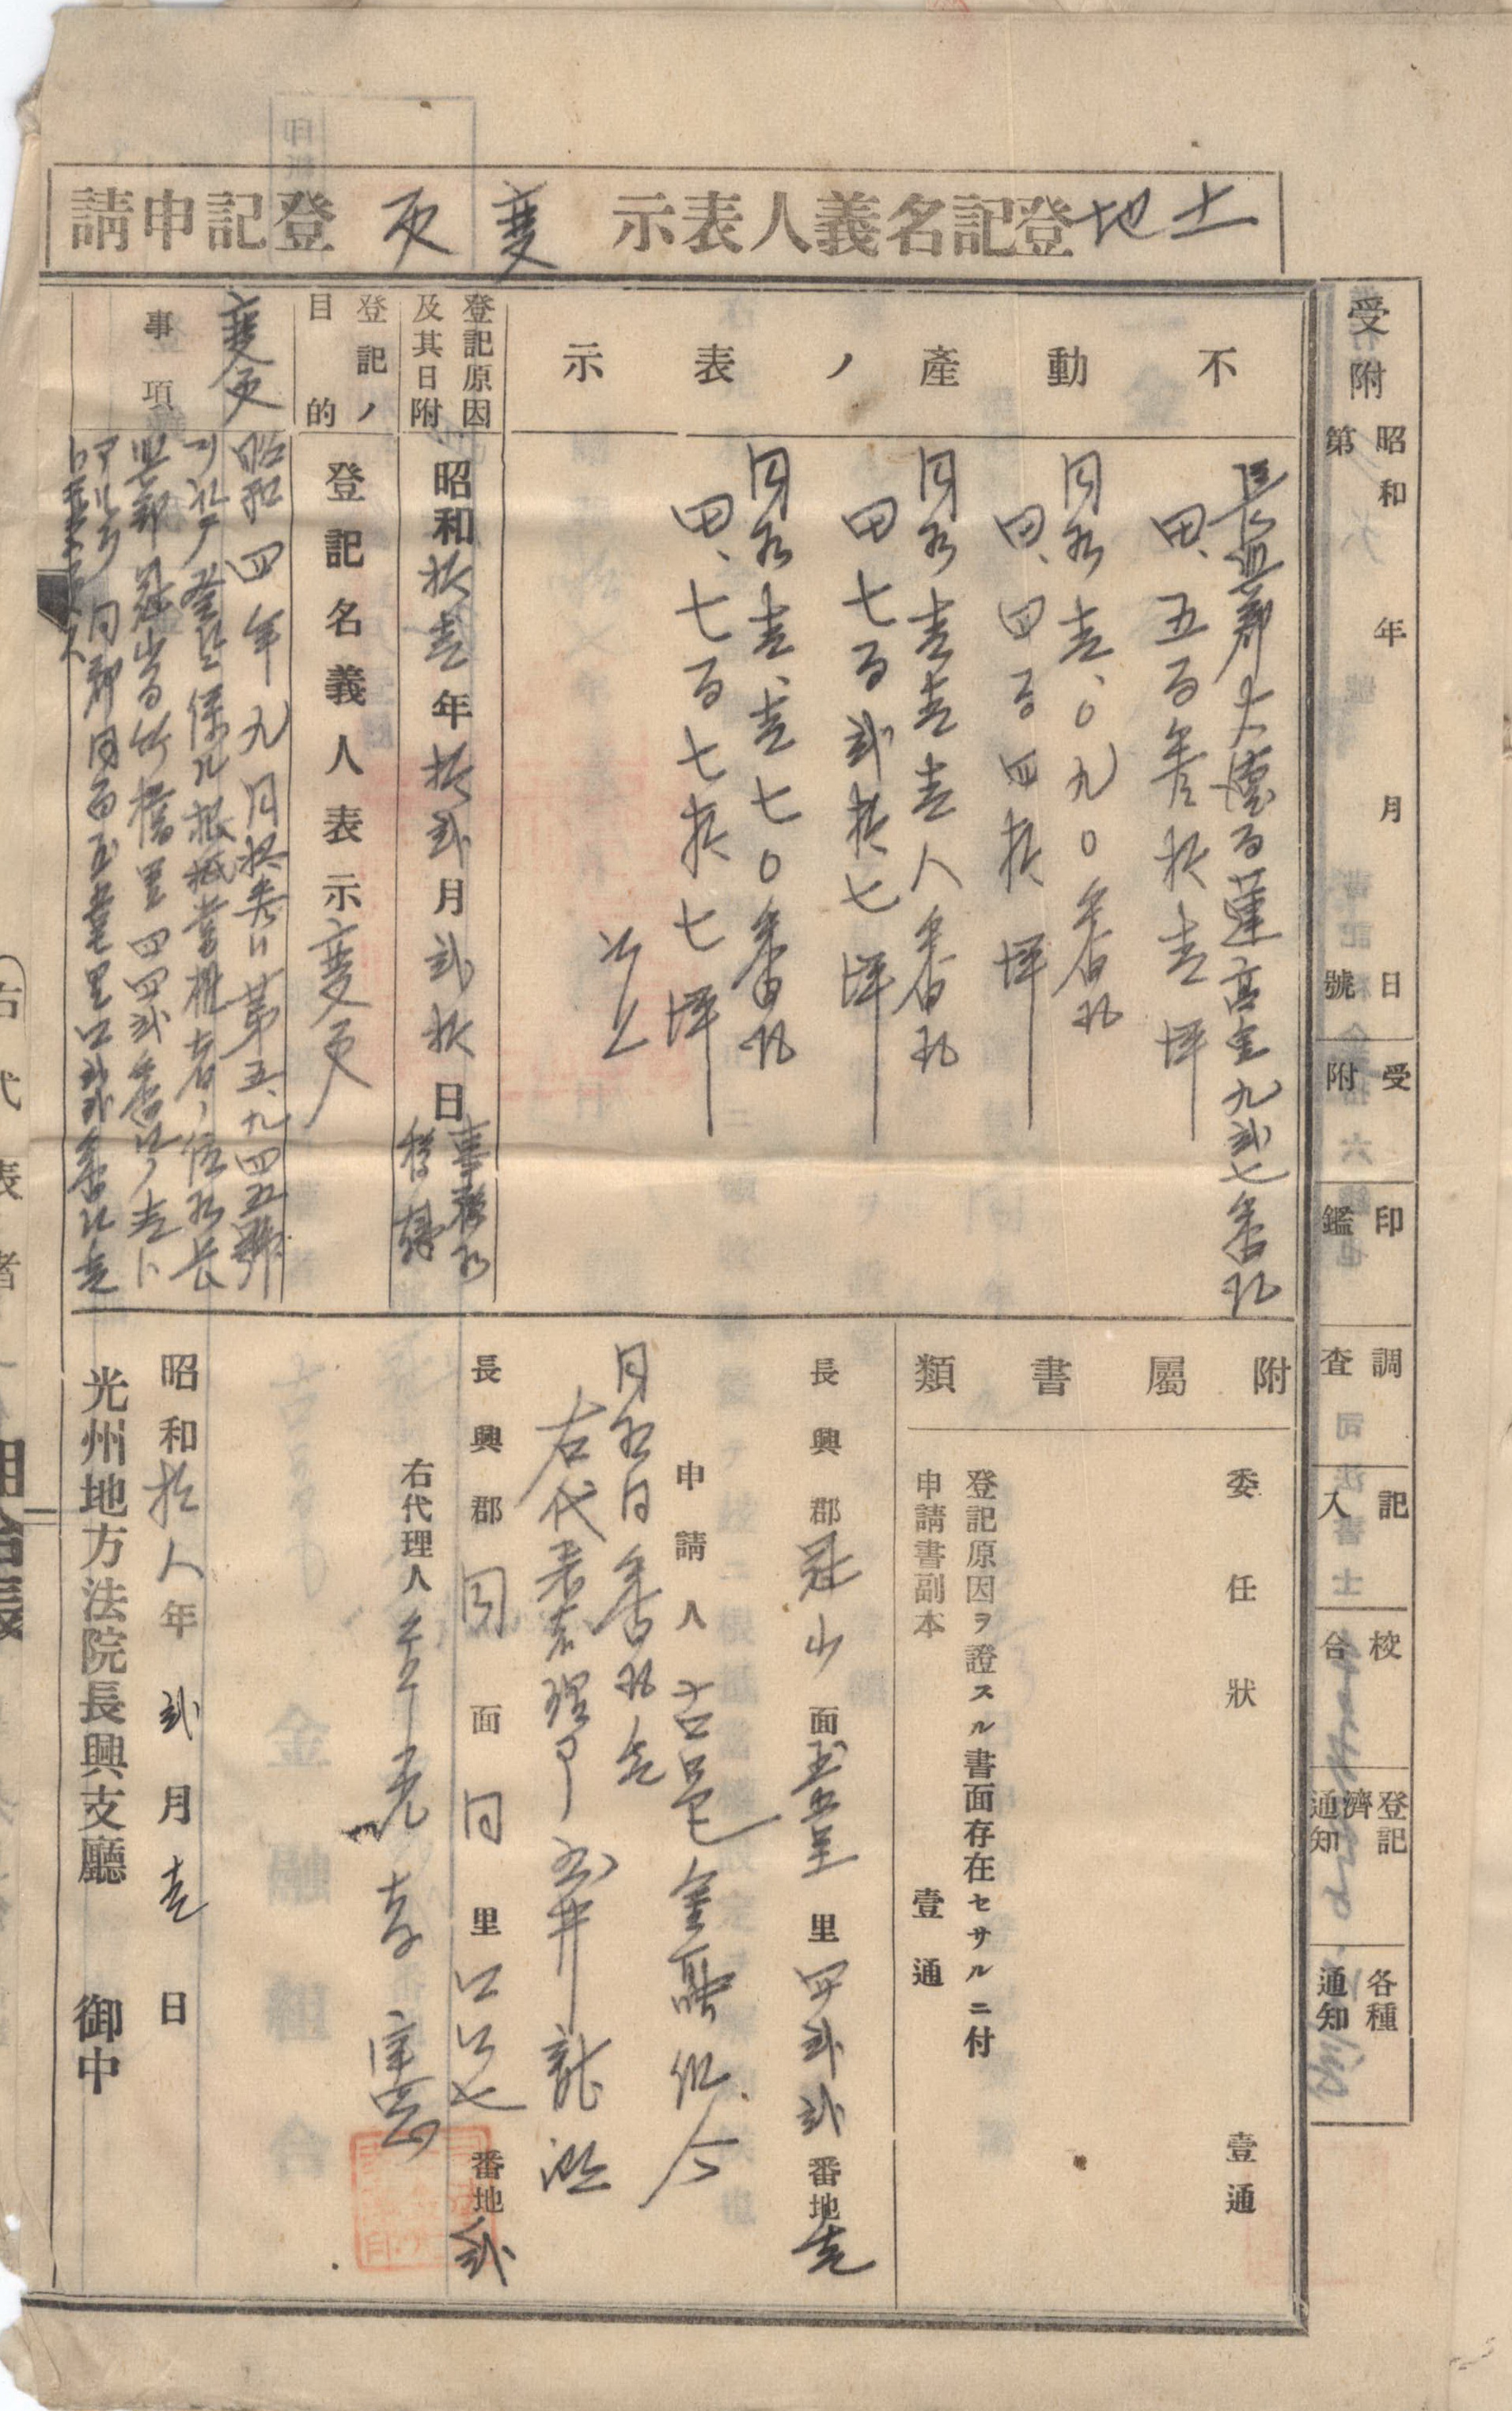 土地登記名義人表示變更登記申請
受附
昭和 年 月 日
第 號
受附
印鑑
調査
記入
校合
登記濟通知
各種通知
不動產ノ表示
長興郡大德面蓮亭里九貳七番地
田、五百參拾壹坪
同所壹、〇九〇番地
田、四百四拾坪
同所壹壹壹八番地
田七百貳拾七坪
同所壹、壹七〇番地
田、七百七拾七坪
以上
登記原因及其日附
昭和拾壹年拾貳月貳拾日事務所移轉
登記ノ目的
登記名義人表示變更
變更事項
昭和四年九月拾參日第五、九四五號
ヲ以テ登記ニ係ル根抵當權者ノ住所長
興郡冠山面竹橋里四四貳番地ノ壹ト
アルヲ同郡同面玉堂里四貳貳番地壹
ト變更ス
附屬書類
委任狀 壹通
登記原因ヲ證スル書面存在セサルニ付
申請書副本 壹通
長興郡冠山面玉堂里四貳貳番地壹
申請人 古邑金融組合
同所同番地壹
右代表者理事 玉井
長興郡同面同里 番地貳
右代理人
昭和拾八年貳月壹日
光州地方法院長興支廳 御中